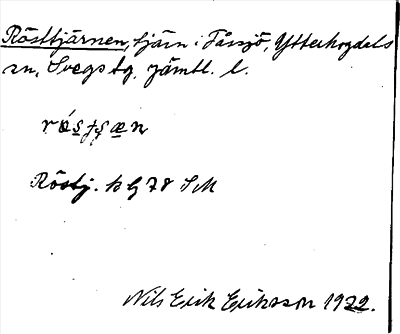 Rösttjärnen, tjärn i Fåssjö, Ytterhogdals
sn, Svegs tg, Jämtl. l.
Röstj. k G 78 SM
Nils Erik Eriksson 1922.